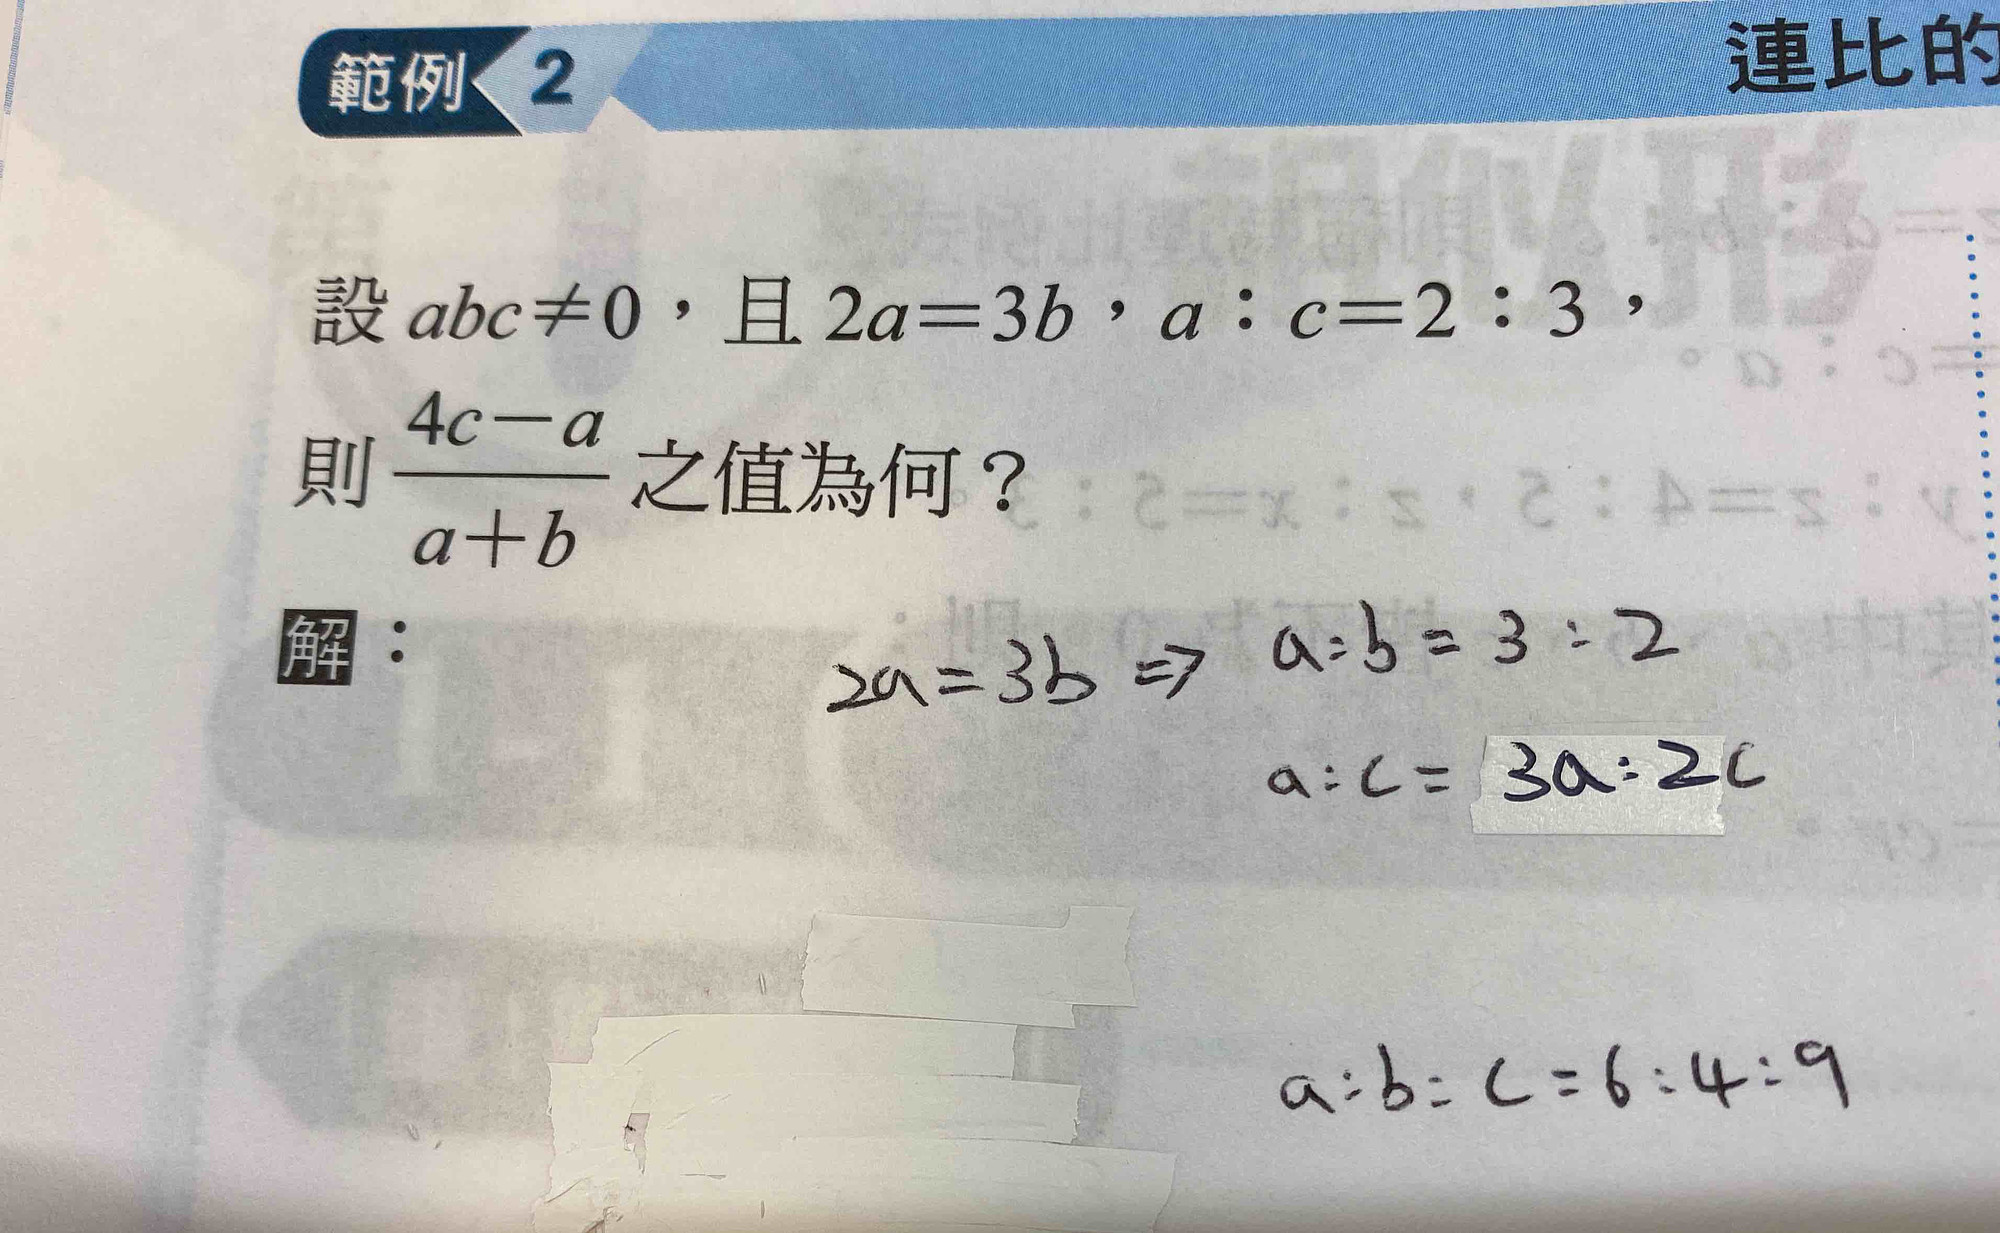 範例 2 連比的
設 abc≠0，且 2a=3b，a：c=2：3，
則 \frac{4c-a}{a+b} 之值為何？
解：
2a=3b => a:b = 3:2
a:c = 3a:2c
a:b:c=6:4:9